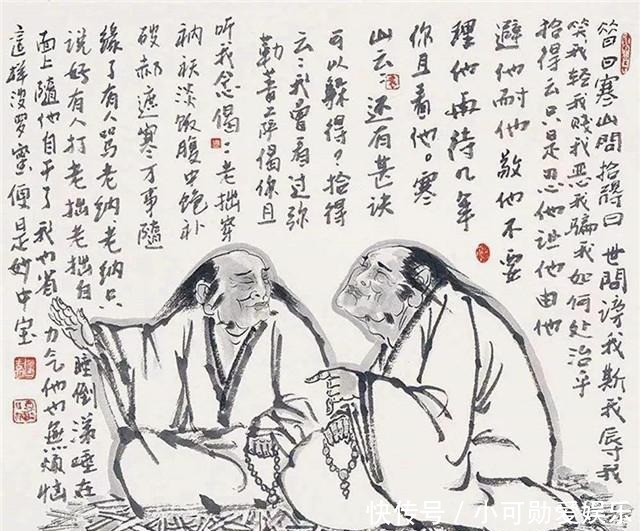 昔日寒山問拾得曰世間謗我欺我辱我
笑我輕我賤我惡我騙我如何处治乎
拾得云只是忍他让他由他
避他耐他敬他不要
理他再待几年
你且看他。寒
山云：还有甚诀
可以躲得？拾得
云：我曾看过弥
勒菩萨偈你且
听我念偈：老拙穿
衲袄淡饭腹中饱补
破好遮寒万事随
缘了有人骂老衲老衲只
说好有人打老拙老拙自
睡倒漾唾在
面上随他自干了我也省
力气他也無煩恼
這样波罗蜜便是妙中宝
快传号 / 小可勋爱娱乐